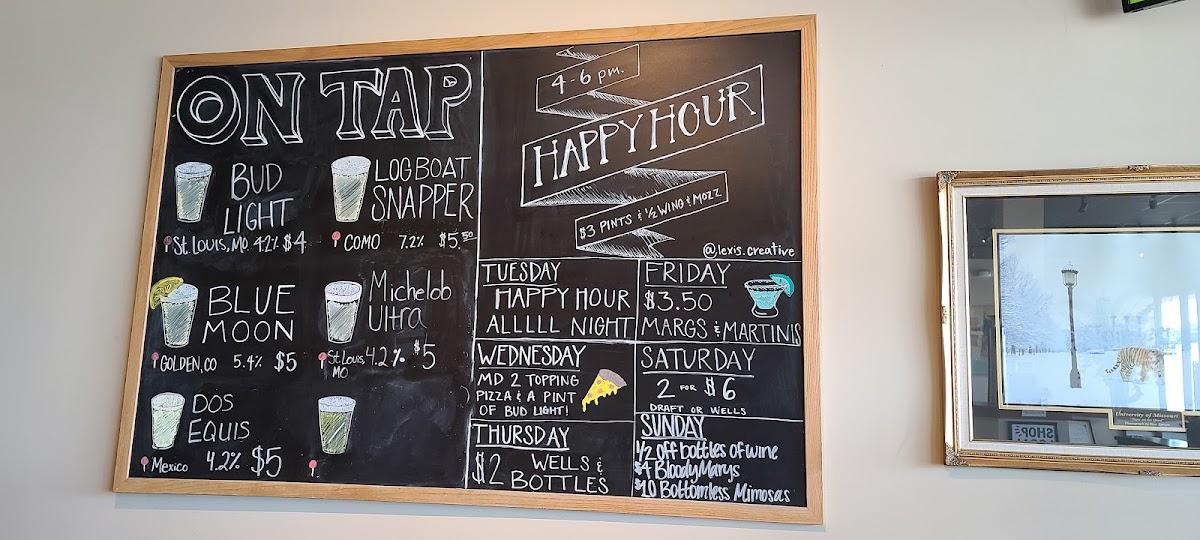 ON TAP
BUD
LIGHT
St. Louis, Mo. 4.2% $4
LOGBOAT
SNAPPER
COMO 7.2% $5.50
BLUE
MOON
GOLDEN, CO 5.4% $5
Michelob
Ultra
St. Louis, 4.2% $5
MO
DOS
EQUIS
Mexico 4.2% $5
4-6 pm.
HAPPY HOUR
$3 PINTS & 1/2 WING & MOZZ
@lexis.creative
TUESDAY
HAPPY HOUR
ALLLLL NIGHT
WEDNESDAY
MD 2 TOPPING
PIZZA & A PINT
OF BUD LIGHT!
THURSDAY
$2 WELLS &
BOTTLES
FRIDAY
$3.50
MARGS & MARTINIS
SATURDAY
2 FOR $6
DRAFT OR WELLS
SUNDAY
1/2 off bottles of wine
$4 Bloody Marys
$10 Bottomless Mimosas
University of Missouri
SHOP